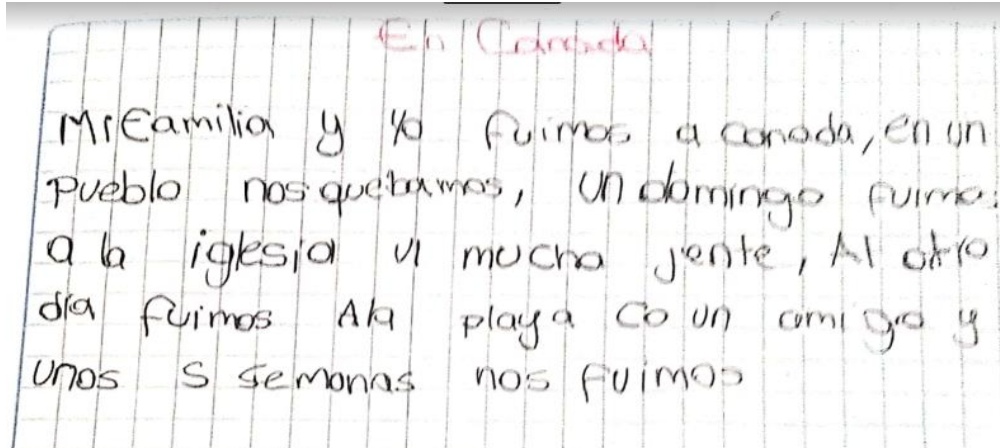 En Canada
Mi Familia y yo fuimos a canada, en un
pueblo nos quebamos, un domingo fuimos
a la iglesia vi mucha jente, Al otro
dia fuimos Ala playa co un amigo y
unos 5 semanas nos fuimos